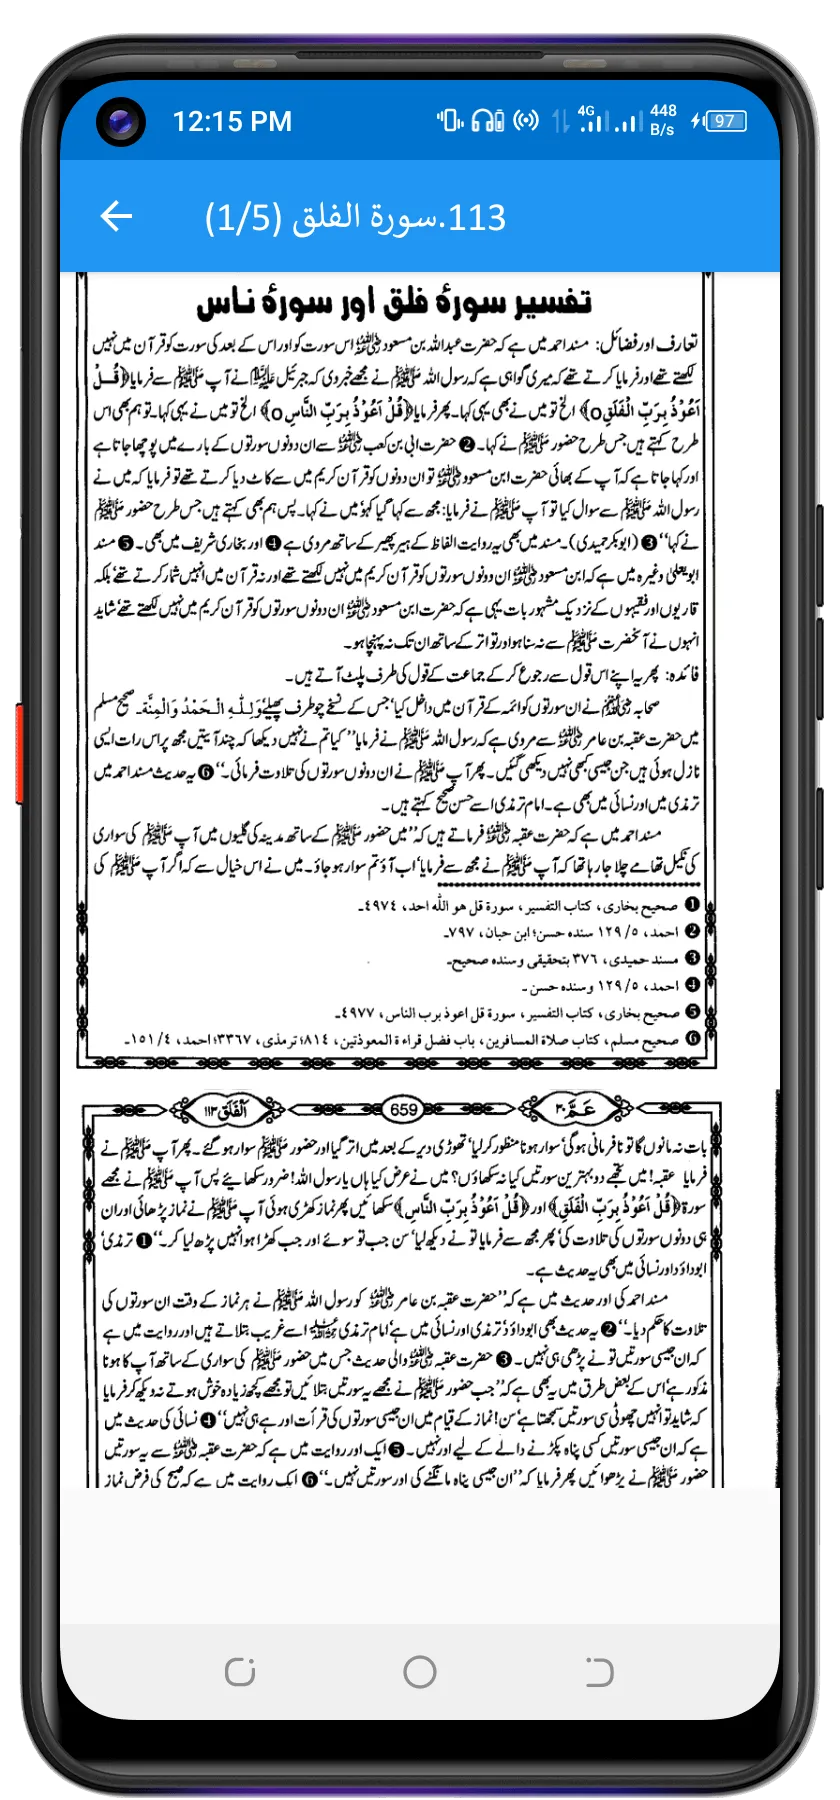 12:15 PM
4G
448
B/s
97
113.سورة الفلق (1/5)
تفسیر سورۂ فلق اور سورۂ ناس
تعارف اور فضائل: مسند احمد میں ہے کہ حضرت عبداللہ بن مسعود رضی اللہ عنہ اس سورت کو اور اس کے بعد کی سورت کو قرآن میں نہیں
لکھتے تھے اور فرمایا کرتے تھے کہ میری گواہی ہے کہ رسول اللہ ﷺ نے مجھے خبر دی کہ جبرئیل علیہ السلام نے آپ ﷺ سے فرمایا ﴿قُلْ
اَعُوْذُ بِرَبِّ الْفَلَقِo﴾ الخ تو میں نے بھی یہی کہا۔ پھر فرمایا ﴿قُلْ اَعُوْذُ بِرَبِّ النَّاسِo﴾ الخ تو میں نے یہی کہا۔ تو ہم بھی اس
طرح کہتے ہیں جس طرح حضور ﷺ نے کہا۔ ❷ حضرت ابی بن کعب رضی اللہ عنہ سے ان دونوں سورتوں کے بارے میں پوچھا جاتا ہے
اور کہا جاتا ہے کہ آپ کے بھائی حضرت ابن مسعود رضی اللہ عنہ تو ان دونوں کو قرآن کریم میں سے کاٹ دیا کرتے تھے تو فرمایا کہ میں نے
رسول اللہ ﷺ سے سوال کیا تو آپ ﷺ نے فرمایا: مجھ سے کہا گیا کہو میں نے کہا۔ پس ہم بھی کہتے ہیں جس طرح حضور ﷺ
نے کہا‘‘ ❸ (ابوبکر حمیدی)۔ مسند میں بھی یہ روایت الفاظ کے ہیر پھیر کے ساتھ مروی ہے ❹ اور بخاری شریف میں بھی۔ ❺ مسند
ابویعلیٰ وغیرہ میں ہے کہ ابن مسعود رضی اللہ عنہ ان دونوں سورتوں کو قرآن کریم میں نہیں لکھتے تھے اور نہ قرآن میں انہیں شمار کرتے تھے‘ بلکہ
قاریوں اور فقیہوں کے نزدیک مشہور بات یہی ہے کہ حضرت ابن مسعود رضی اللہ عنہ ان دونوں سورتوں کو قرآن کریم میں نہیں لکھتے تھے‘ شاید
انہوں نے آنحضرت ﷺ سے نہ سنا ہو اور تواتر کے ساتھ ان تک نہ پہنچا ہو۔
فائدہ: پھر یہ اپنے اس قول سے رجوع کر کے جماعت کے قول کی طرف پلٹ آتے ہیں۔
صحابہ رضی اللہ عنہم نے ان سورتوں کو ائمہ کے قرآن میں داخل کیا‘ جس کے نسخے چو طرف پھیلے وَلِلّٰہِ الْحَمْدُ وَالْمِنَّۃ۔ صحیح مسلم
میں حضرت عقبہ بن عامر رضی اللہ عنہ سے مروی ہے کہ رسول اللہ ﷺ نے فرمایا ’’کیا تم نے نہیں دیکھا کہ چند آیتیں مجھ پر اس رات ایسی
نازل ہوئی ہیں جن جیسی کبھی نہیں دیکھی گئیں۔ پھر آپ ﷺ نے ان دونوں سورتوں کی تلاوت فرمائی۔‘‘ ❻ یہ حدیث مسند احمد میں
ترمذی میں اور نسائی میں بھی ہے۔ امام ترمذی اسے حسن صحیح کہتے ہیں۔
مسند احمد میں ہے کہ حضرت عقبہ رضی اللہ عنہ فرماتے ہیں کہ ’’میں حضور ﷺ کے ساتھ مدینہ کی گلیوں میں آپ ﷺ کی سواری
کی نکیل تھامے چلا جا رہا تھا کہ آپ ﷺ نے مجھ سے فرمایا‘ اب آؤ تم سوار ہو جاؤ۔ میں نے اس خیال سے کہ اگر آپ ﷺ کی
❶ صحیح بخاری، کتاب التفسیر، سورۃ قل ھو اللہ احد، ٤٩٧٤۔
❷ احمد، ٥/ ١٢٩ سندہ حسن؛ ابن حبان، ٧٩٧۔
❸ مسند حمیدی، ٣٧٦ بتحقیقی وسندہ صحیح۔
❹ احمد، ٥/ ١٢٩ وسندہ حسن۔
❺ صحیح بخاری، کتاب التفسیر، سورۃ قل اعوذ برب الناس، ٤٩٧٧۔
❻ صحیح مسلم، کتاب صلاۃ المسافرین، باب فضل قراءۃ المعوذتین، ٨١٤؛ ترمذی، ٣٣٦٧؛ احمد، ٤/ ١٥١۔
عَمَّ ٣٠ 659 اَلْفَلَق ١١٣
بات نہ مانوں گا تو نافرمانی ہو گی‘ سوار ہونا منظور کر لیا‘ تھوڑی دیر کے بعد میں اتر گیا اور حضور ﷺ سوار ہو گئے۔ پھر آپ ﷺ نے
فرمایا عقبہ! میں تجھے دو بہترین سورتیں کیا نہ سکھاؤں؟ میں نے عرض کیا ہاں یا رسول اللہ! ضرور سکھائیے پس آپ ﷺ نے مجھے
سورۃ ﴿قُلْ اَعُوْذُ بِرَبِّ الْفَلَقِ﴾ اور ﴿قُلْ اَعُوْذُ بِرَبِّ النَّاسِ﴾ سکھائیں پھر نماز کھڑی ہوئی آپ ﷺ نے نماز پڑھائی اور ان
ہی دونوں سورتوں کی تلاوت کی‘ پھر مجھ سے فرمایا تو نے دیکھ لیا‘ سن جب تو سوئے اور جب کھڑا ہو انہیں پڑھ لیا کر۔‘‘ ❶ ترمذی‘
ابوداؤد اور نسائی میں بھی یہ حدیث ہے۔
مسند احمد کی اور حدیث میں ہے کہ ’’حضرت عقبہ بن عامر رضی اللہ عنہ کو رسول اللہ ﷺ نے ہر نماز کے وقت ان سورتوں کی
تلاوت کا حکم دیا۔‘‘ ❷ یہ حدیث بھی ابوداؤد‘ ترمذی اور نسائی میں ہے‘ امام ترمذی رحمہ اللہ اسے غریب بتلاتے ہیں اور روایت میں ہے
کہ ان جیسی سورتیں تو نے پڑھی ہی نہیں۔ ❸ حضرت عقبہ رضی اللہ عنہ والی حدیث جس میں حضور ﷺ کی سواری کے ساتھ آپ کا ہونا
مذکور ہے‘ اس کے بعض طرق میں یہ بھی ہے کہ ’’جب حضور ﷺ نے مجھے یہ سورتیں بتلائیں تو مجھے کچھ زیادہ خوش ہوتے نہ دیکھ کر فرمایا
کہ شاید تو انہیں چھوٹی سی سورتیں سمجھتا ہے‘ سن! نماز کے قیام میں ان جیسی سورتوں کی قرأت اور ہے ہی نہیں‘‘ ❹ نسائی کی حدیث میں
ہے کہ ان جیسی سورتیں کسی پناہ پکڑنے والے کے لیے اور نہیں۔ ❺ ایک اور روایت میں ہے کہ حضرت عقبہ رضی اللہ عنہ سے یہ سورتیں
حضور ﷺ نے پڑھوائیں پھر فرمایا کہ ’’ان جیسی پناہ مانگنے کی اور سورتیں نہیں۔‘‘ ❻ ایک روایت میں ہے کہ صبح کی فرض نماز